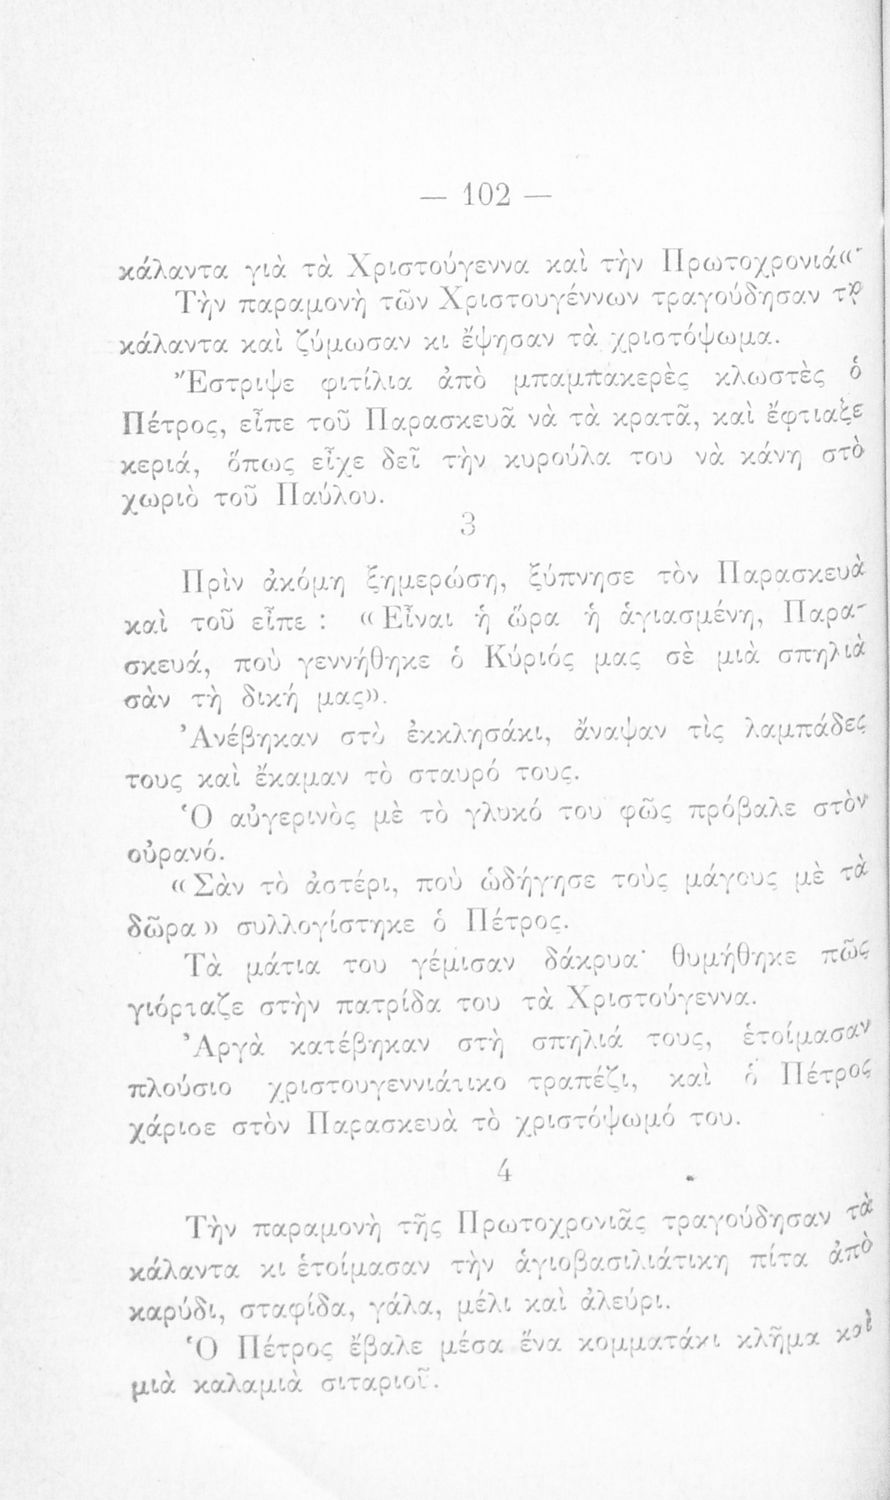 — 102 —
κάλαντα γιὰ τὰ Χριστούγεννα καὶ τὴν Πρωτοχρονιά«
Τὴν παραμονὴ τῶν Χριστουγέννων τραγούδησαν τὰ
κάλαντα καὶ ζύμωσαν κι ἔψησαν τὰ χριστόψωμα.
Ἔστριψε φιτίλια ἀπὸ μπαμπακερὲς κλωστὲς ὁ
Πέτρος, εἶπε τοῦ Παρασκευᾶ νὰ τὰ κρατᾶ, καὶ ἔφτιαξε
κεριά, ὅπως εἶχε δεῖ τὴν κυρούλα του νὰ κάνη στὸ
χωριὸ τοῦ Παύλου.
3
Πρὶν ἀκόμη ξημερώση, ξύπνησε τὸν Παρασκευὰ
καὶ τοῦ εἶπε : «Εἶναι ἡ ὥρα ἡ ἁγιασμένη, Παρα-
σκευά, ποὺ γεννήθηκε ὁ Κύριός μας σὲ μιὰ σπηλιὰ
σὰν τὴ δική μας».
Ἀνέβηκαν στὸ ἐκκλησάκι, ἄναψαν τὶς λαμπάδες
τους καὶ ἔκαμαν τὸ σταυρό τους.
Ὁ αὐγερινὸς μὲ τὸ γλυκό του φῶς πρόβαλε στὸν
οὐρανό.
«Σὰν τὸ ἀστέρι, ποὺ ὡδήγησε τοὺς μάγους μὲ τὰ
δῶρα» συλλογίστηκε ὁ Πέτρος.
Τὰ μάτια του γέμισαν δάκρυα· θυμήθηκε πῶς
γιόρταζε στὴν πατρίδα του τὰ Χριστούγεννα.
Ἀργὰ κατέβηκαν στὴ σπηλιά τους, ἑτοίμασαν
πλούσιο χριστουγεννιάτικο τραπέζι, καὶ ὁ Πέτρος
χάρισε στὸν Παρασκευὰ τὸ χριστόψωμό του.
4
Τὴν παραμονὴ τῆς Πρωτοχρονιᾶς τραγούδησαν τὰ
κάλαντα κι ἑτοίμασαν τὴν ἁγιοβασιλιάτικη πίτα ἀπὸ
καρύδι, σταφίδα, γάλα, μέλι καὶ ἀλεύρι.
Ὁ Πέτρος ἔβαλε μέσα ἕνα κομματάκι κλῆμα καὶ
μιὰ καλαμιὰ σιταριοῦ.